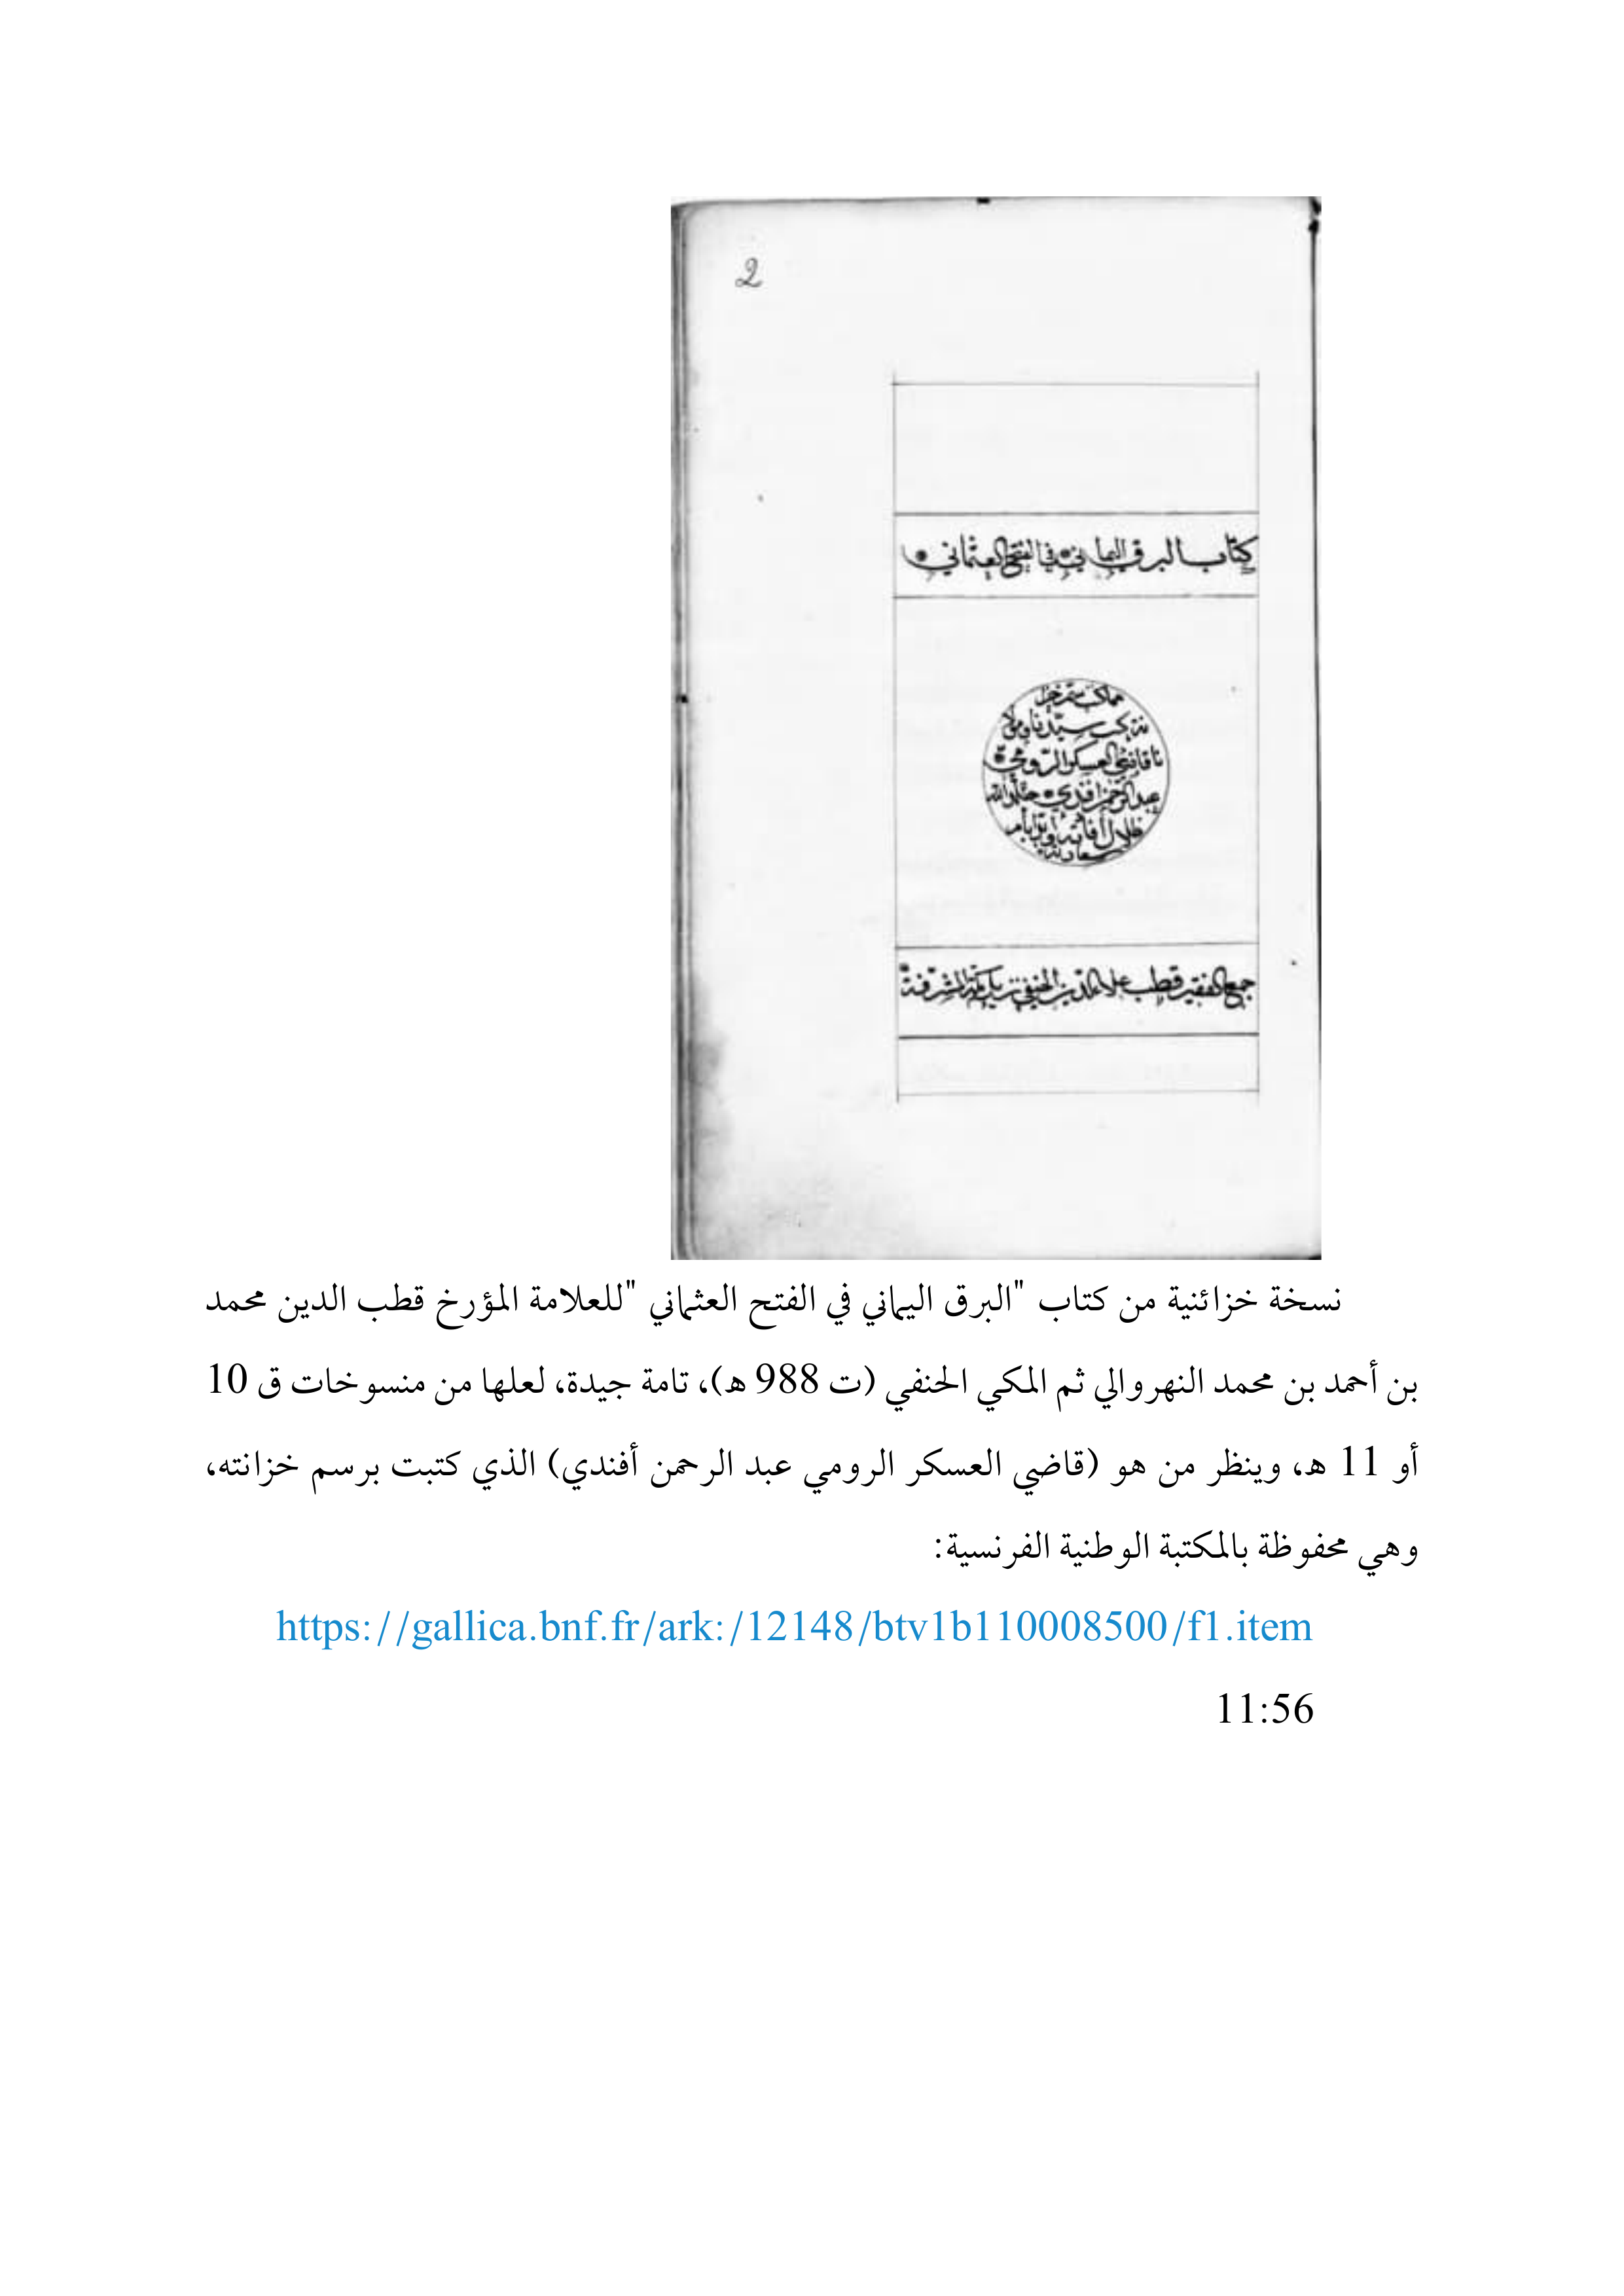 2
كتاب البرق اليماني في الفتح العثماني
سيدنا ومولا
نا قاضي العسكر الرومي
عبد الرحمن افندي خلد الله
ظلال
سعادته
جمع الفقير قطب علاء الدين الحنفي نزيل مكة المشرفة
نسخة خزائنية من كتاب "البرق اليماني في الفتح العثماني "للعلامة المؤرخ قطب الدين محمد
بن أحمد بن محمد النهروالي ثم المكي الحنفي (ت 988 هـ)، تامة جيدة، لعلها من منسوخات ق 10
أو 11 هـ، وينظر من هو (قاضي العسكر الرومي عبد الرحمن أفندي) الذي كتبت برسم خزانته،
وهي محفوظة بالمكتبة الوطنية الفرنسية:
https://gallica.bnf.fr/ark:/12148/btv1b110008500/f1.item
11:56